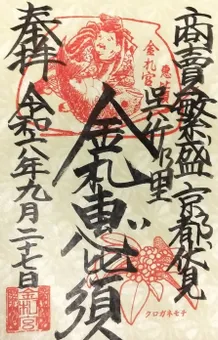 商賣繁盛 京都伏見
呉竹乃里
金札宮
恵比須
金札恵比須
奉拝
令和六年九月二十七日
クロガネモチ
金札宮